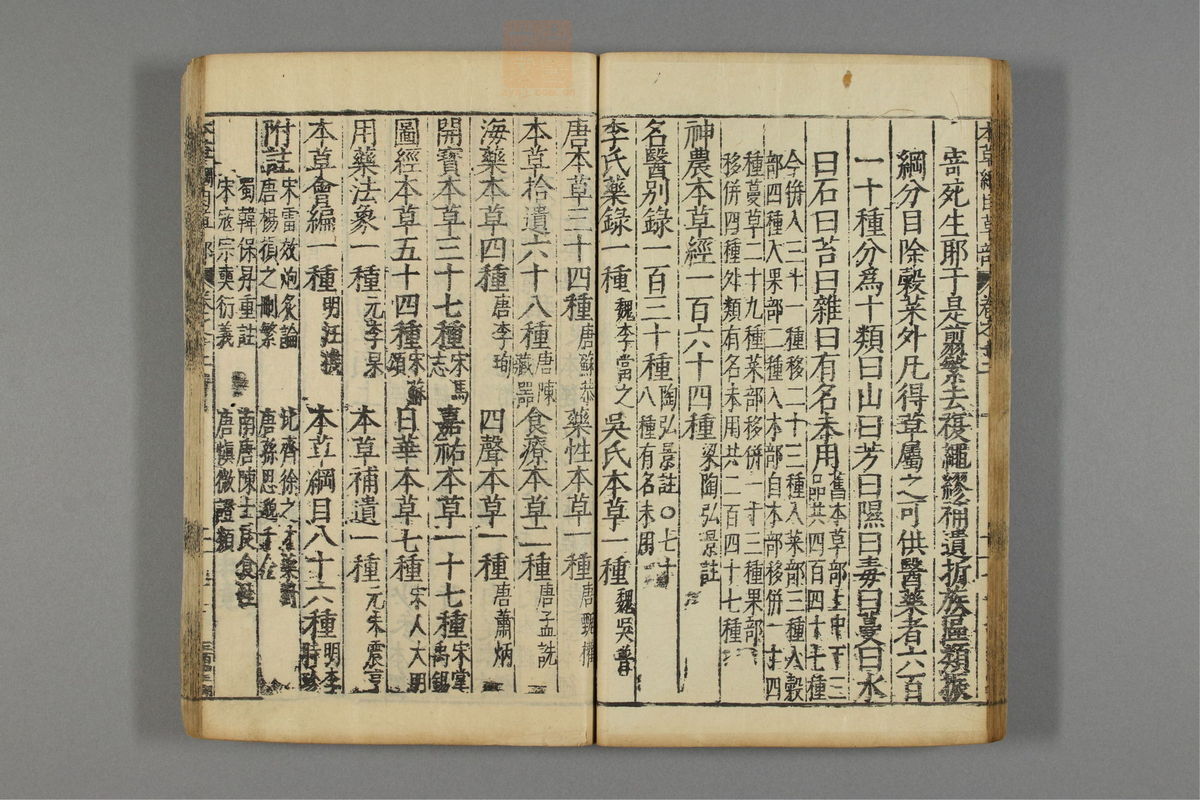 寄死生耶于是煎繁去複繩繆補遺析族區類振
綱分目除穀菜外凡得草屬之可供醫藥者六百
一十種分爲十類曰山曰芳曰隰曰毒曰蔓曰水
曰石曰苔曰雜曰有名未用舊本草部上中下三
品共四百四十七種
今併入三十一種移二十三種入菜部三種入穀
部四種入果部二種入木部自木部移併一十四
種蔓草二十九種菜部移併一十三種果部
移併四種外類有名未用共二百四十七種
神農本草經一百六十四種梁陶弘景註
名醫别錄一百三十種陶弘景註○七十
八種有名未用
李氏藥錄一種魏李當之 吳氏本草一種魏吳普
唐本草三十四種唐蘇恭 藥性本草一種唐甄權
本草拾遺六十八種唐陳藏器 食療本草二種唐孟詵
海藥本草四種唐李珣 四聲本草一種唐蕭炳
開寶本草三十七種宋馬志 嘉祐本草一十七種宋掌禹錫
圖經本草五十四種宋蘇頌 日華本草七種宋人大明
用藥法象一種元李杲 本草補遺一種元朱震亨
本草會編一種明汪機 本草綱目八十六種明李時珍
附註宋雷斅炮炙論 北齊徐之才藥對
唐楊損之刪繁 唐孫思邈千金
蜀韓保昇重註 南唐陳士良食性
宋寇宗奭衍義 唐慎微證類